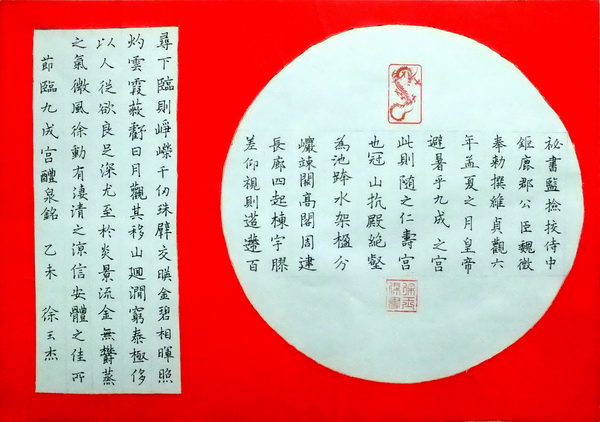 祕書監撿挍侍中
鉅鹿郡公臣魏徵
奉勑撰維貞觀六
年孟夏之月皇帝
避暑乎九成之宮
此則隨之仁壽宮
也冠山抗殿絕壑
為池跨水架楹分
巖竦闕高閣周建
長廊四起棟宇膠
差仰視則迢遰百
尋下臨則崢嶸千仞珠壁交暎金碧相暉照
灼雲霞蔽虧日月觀其移山迴澗窮泰極侈
以人從欲良足深尤至於炎景流金無鬱蒸
之氣微風徐動有淒清之涼信安體之佳所
節臨九成宮醴泉銘 乙未 徐玉杰